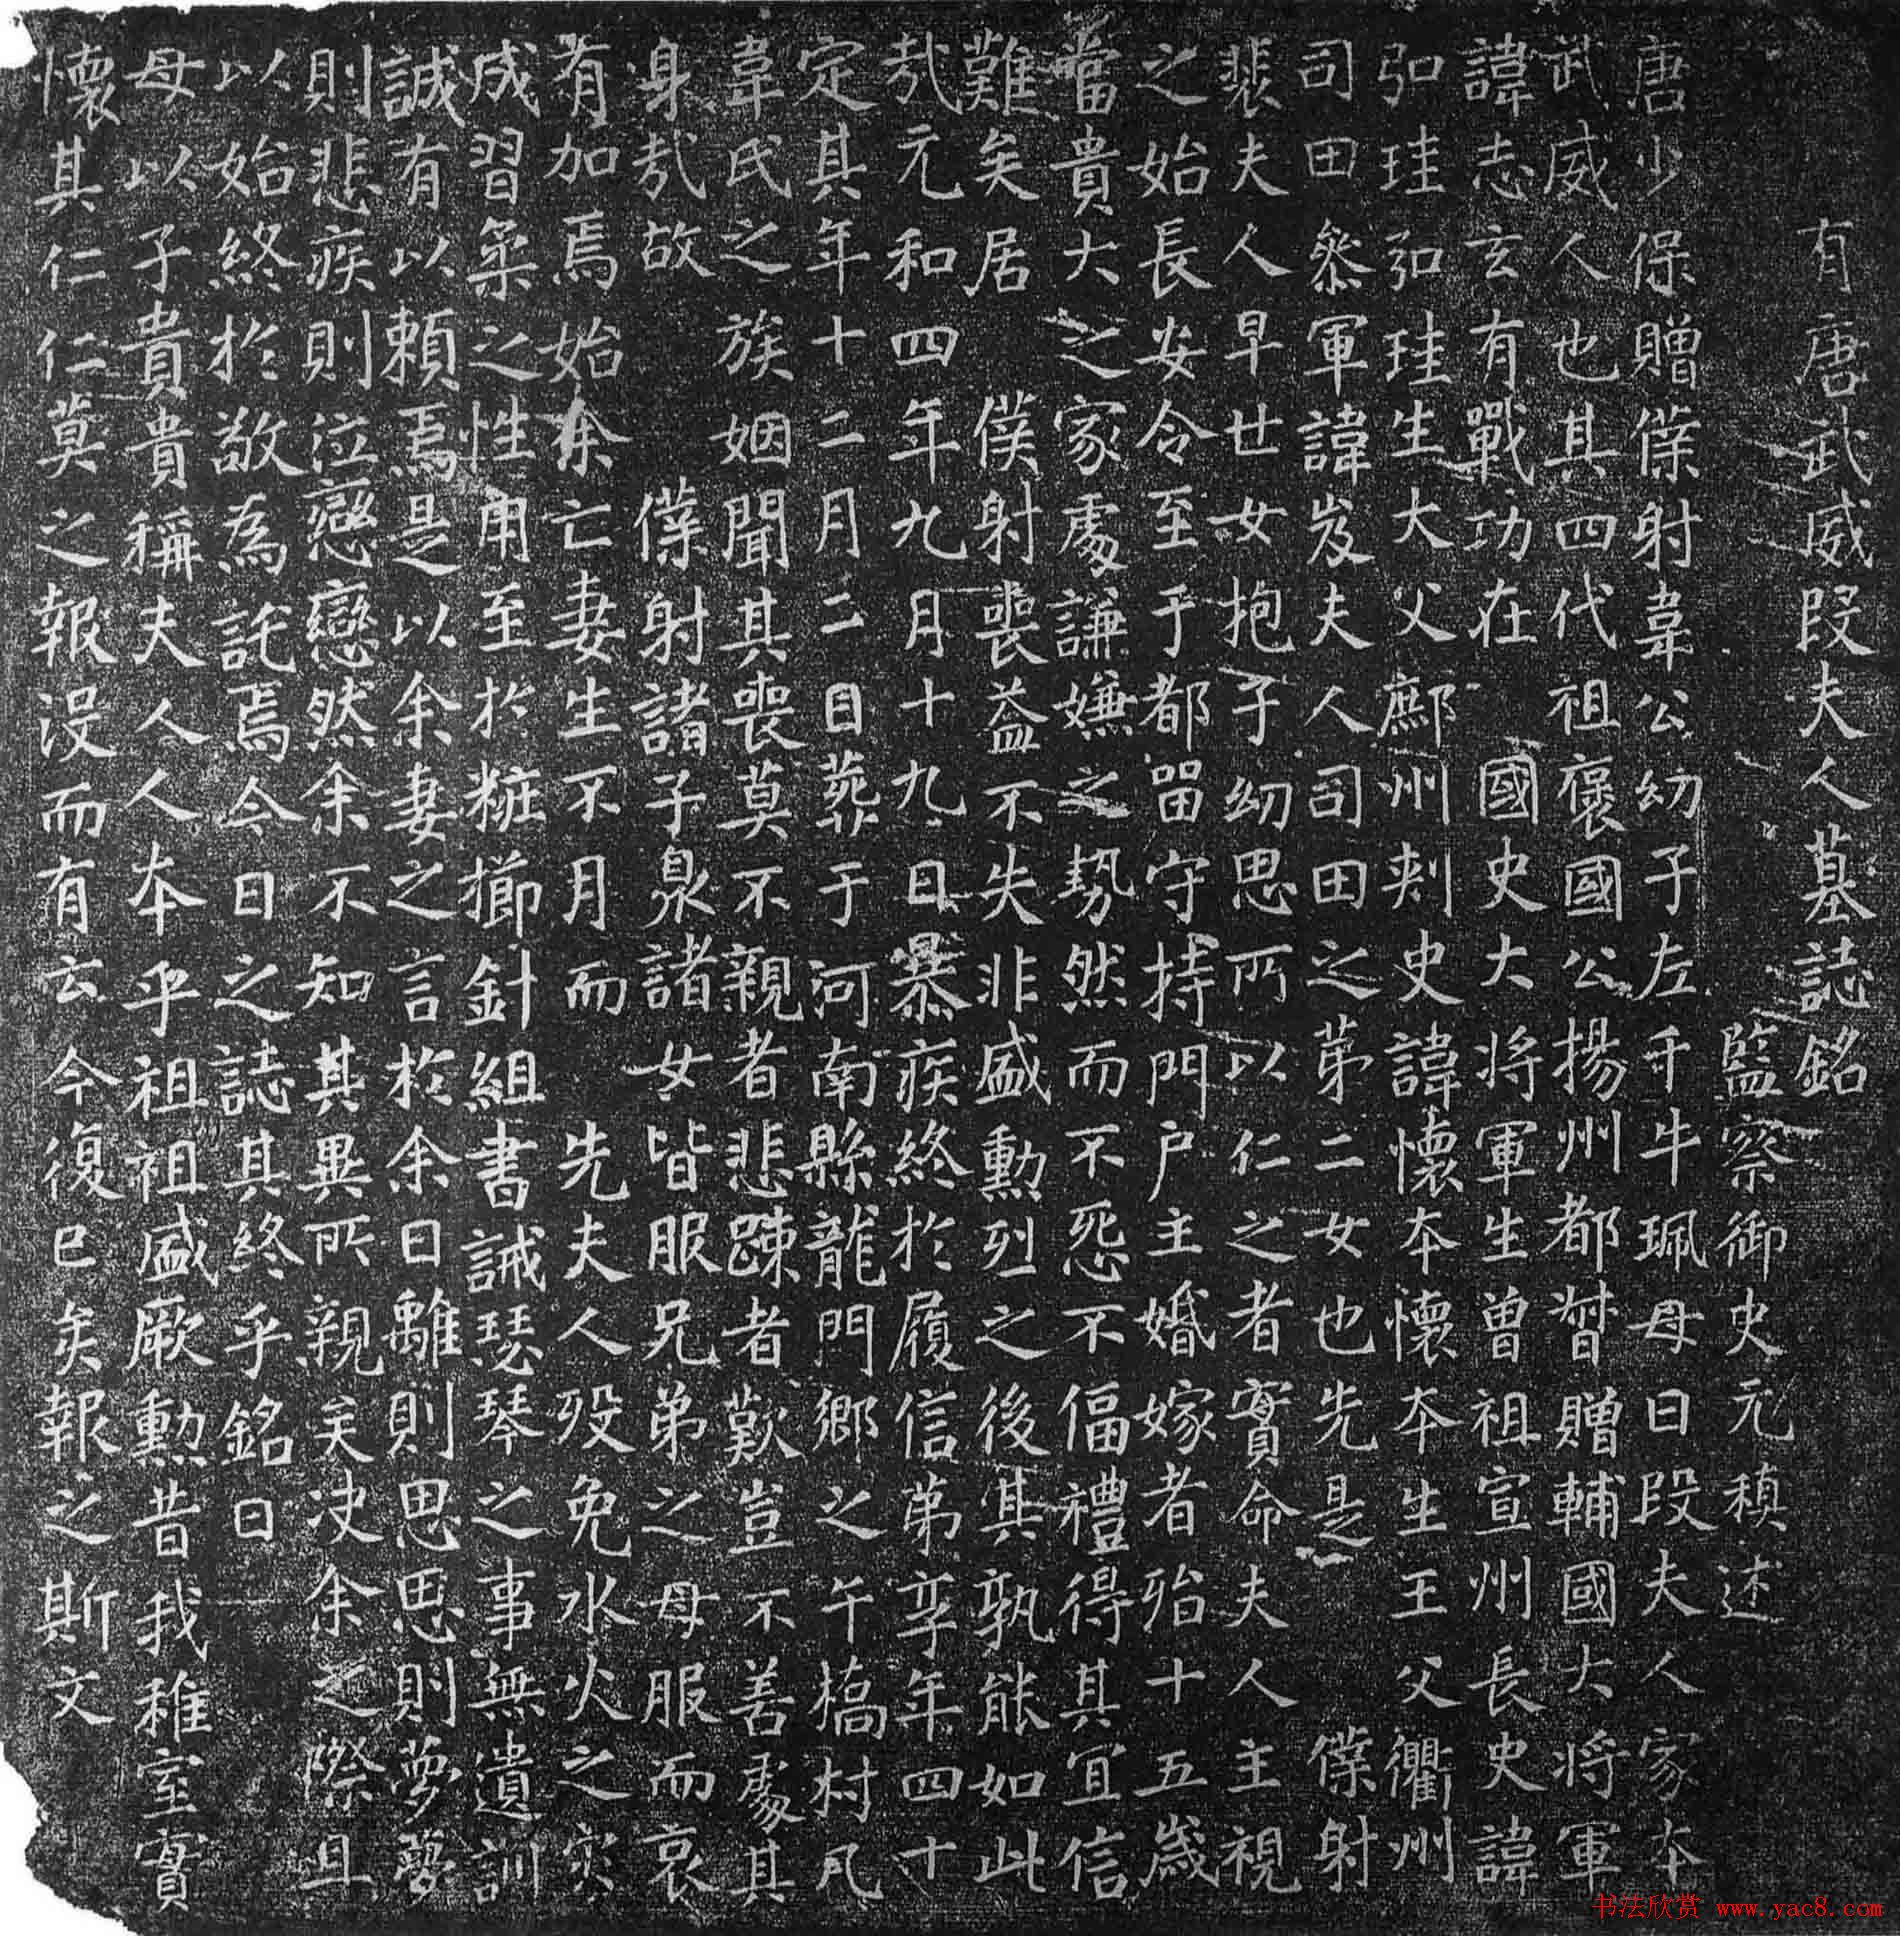 有唐武威段夫人墓誌銘
監察御史元稹述
唐少保贈僕射韋公幼子左千牛珮母曰段夫人家本
武威人也其四代祖褒國公揚州都督贈輔國大將軍
諱志玄有戰功在 國史大將軍生曾祖宣州長史諱
弘珪弘珪生大父鄜州刺史諱懷本懷本生王父衢州
司田參軍諱岌夫人司田之第二女也先是 僕射
裴夫人早世女抱子幼思所以仁之者實命夫人主視
之始長安令至于都留守持門戶主婚嫁者殆十五歲
當貴大之家處謙嫌之勢然而不怨不偪禮得其宜信
難矣居 僕射喪益不失非盛勳烈之後其孰能如此
哉元和四年九月十九日暴疾終於履信第享年四十
定其年十二月二日葬于河南縣龍門鄉之午橋村凡
韋氏之族姻聞其喪莫不親者悲踈者歎豈不善處其
身哉故 僕射諸子泉諸女皆服兄弟之母服而哀
有加焉始余亡妻生不月而 先夫人歿免水火之災
成習柔之性用至於粧擳針組書誡琴瑟之事無遺訓
誠有以賴焉是以余妻之言於余曰離則思思則夢夢
則悲疾則泣戀戀然余不知其異所親矣决余之際且
以始終於敬為託焉今日之誌其終乎銘曰
母以子貴貴稱夫人人本乎祖祖盛厥勳昔我稚室實
懷其仁仁莫之報沒而有云今復已矣報之斯文
书法欣赏 www.yac8.com